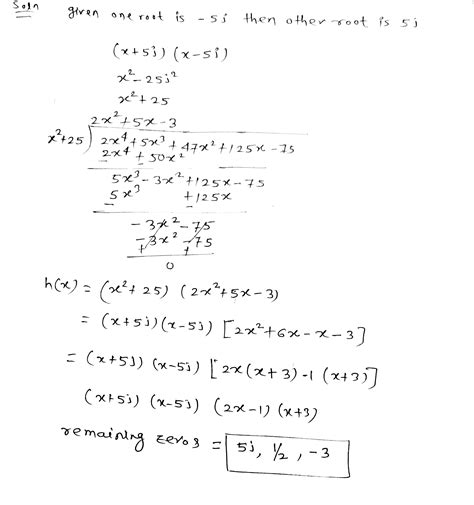 Soln
given one root is -5j then other root is 5j
(x+5j) (x-5j)
x²-25j²
x²+25
2x²+5x-3
x²+25) 2x⁴+5x³+47x²+125x-75
2x⁴ + 50x²
-
5x³-3x²+125x-75
5x³ +125x
- -
-3x²-75
-3x²-75
+ +
0
h(x) = (x²+25) (2x²+5x-3)
= (x+5j)(x-5j) [2x²+6x-x-3]
= (x+5j) (x-5j) [2x(x+3)-1(x+3)]
(x+5j) (x-5j) (2x-1) (x+3)
remaining zeros = 5j, 1/2, -3